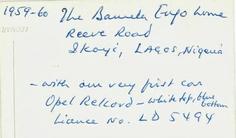 1959-60 The Bamuta Engo home
Reeve Road
Ikoyi, Lagos, Nigeria
- with our very first car
Opel Rekord - white top, blue bottom
Licence No. LD 5494